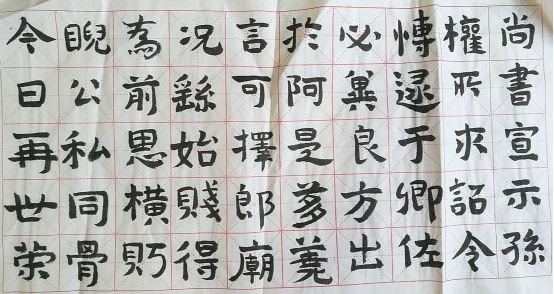 尚書宣示孫
權所求詔令
愽逮于卿佐
必冀良方出
於阿是芻蕘
言可擇郎廟
况繇始賤得
為前恩横眄
睨公私同骨
今日再世荣